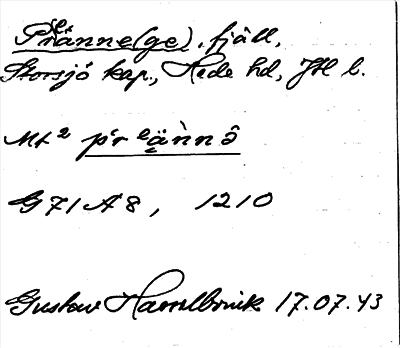 Pränne(ge), fjäll,
Storsjö kap., Hede hd, JH l.
Mt² pr²ànnô
G71A8, 1210
Gustav Hasselbrink 17.07.43